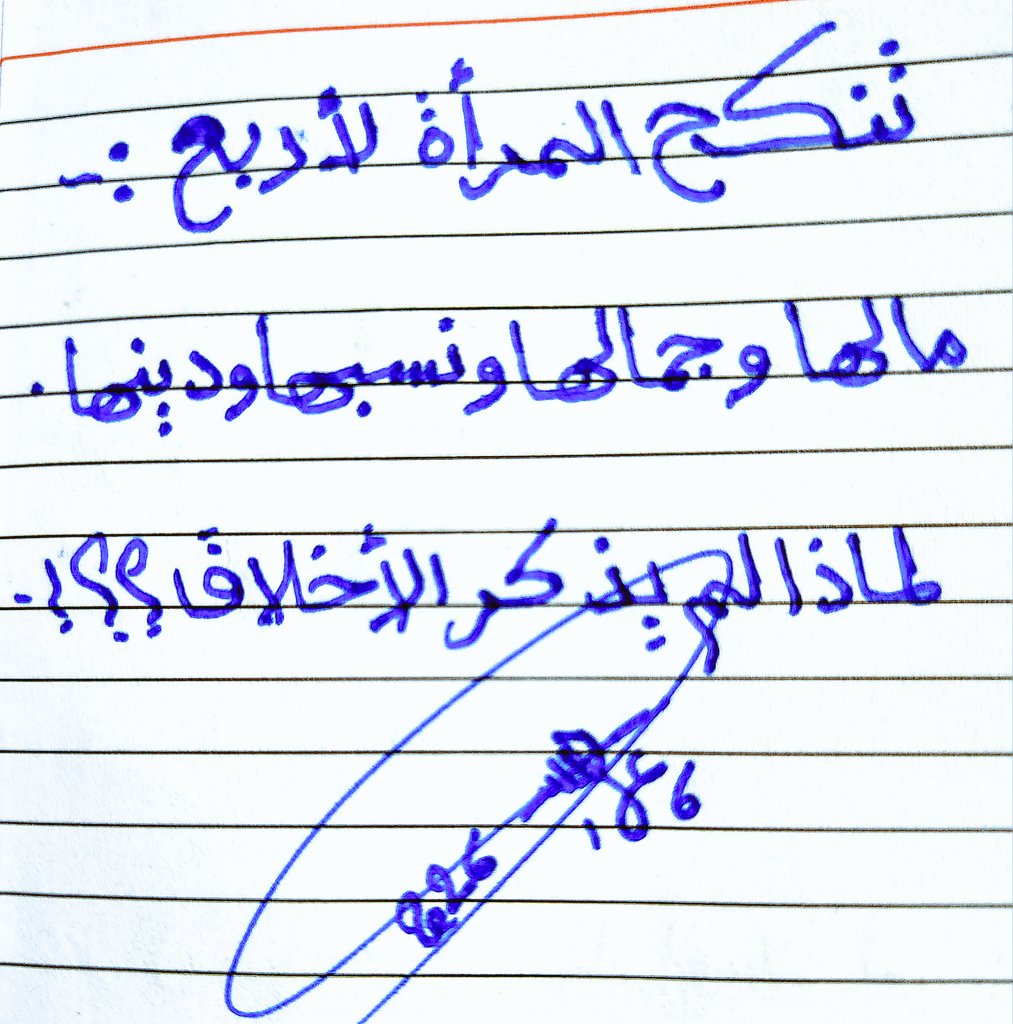 تنكح المرأة لأربع :-
مالها وجمالها ونسبها ودينها .
لماذا لم يذكر الأخلاق ؟؟؟! .